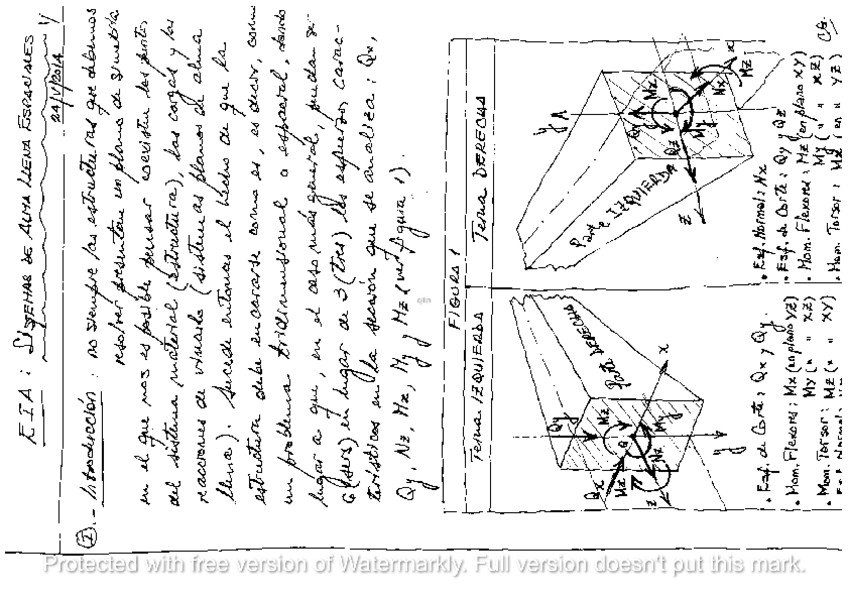 EIA : SISTEMAS DE ALMA LLENA ESPACIALES
24/V/2014
I.- Introducción : no siempre las estructuras que debemos
resolver presentan un plano de simetría
en el que nos es posible pensar coexisten los puntos
del sistema material (estructura), las cargas y las
reacciones de vínculo (sistemas planos de alma
llena). Sucede entonces el hecho de que la
estructura debe encararse como es, es decir, como
un problema tridimensional o espacial, dando
lugar a que, en el caso más general, puedan ser
6 (seis) en lugar de 3 (tres) los esfuerzos carac-
terísticos en la sección que se analiza : Qx,
Qy, Nz, Mx, My y Mz (ver figura 1).
FIGURA 1
Terna IZQUIERDA
Parte DERECHA
Qy
Mz
Qx
Mx
G
My
Nz
x
y
z
• Esf. de Corte : Qx y Qy.
• Mom. Flexores : Mx (en plano YZ)
My (" " XZ)
• Mom. Torsor : Mz (" " XY)
Terna DERECHA
Parte IZQUIERDA
y
A
Qy
Mx
Qz
My
Nx
Mz
x
z
• Esf. Normal : Nx
• Esf. de Corte : Qy y Qz
• Mom. Flexores : Mz (en plano XY)
My (" " XZ)
• Mom. Torsor : Mx (en " YZ)
CG.
Protected with free version of Watermarkly. Full version doesn't put this mark.